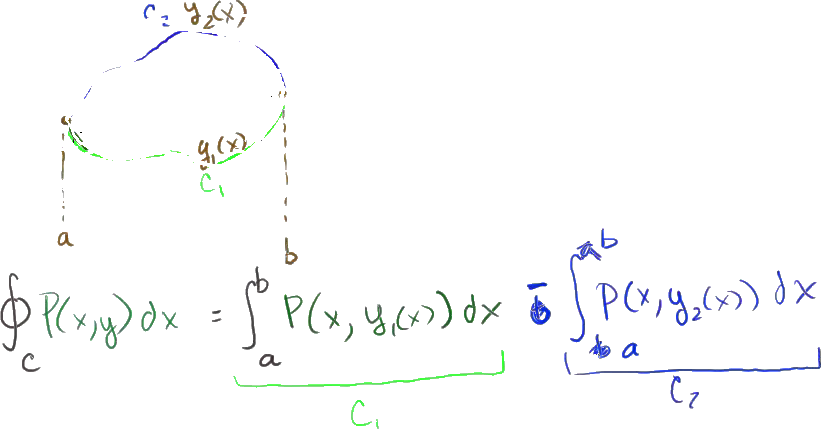 C₂ y₂(x)
y₁(x)
C₁
a b
∮_C P(x,y) dx = ∫_a^b P(x, y₁(x)) dx - ∫_a^b P(x, y₂(x)) dx
C₁ C₂